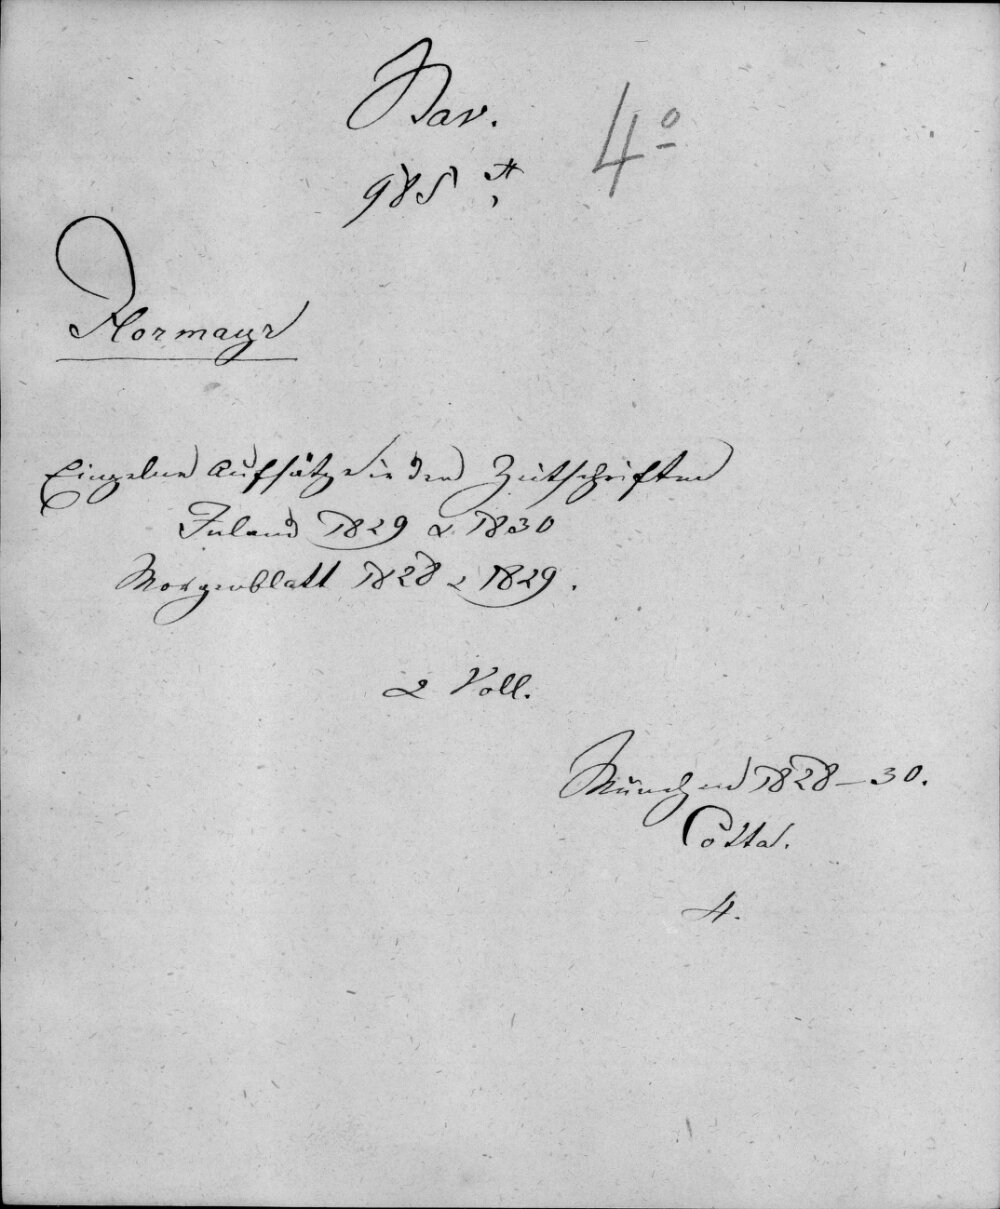 Bav. 4°
985
Hormayr
Einzelne Aufsätze in den Zeitschriften
Inland 1829 & 1830
Morgenblatt 1828 & 1829.
2 Voll.
München 1828–30.
Cotta.
4.